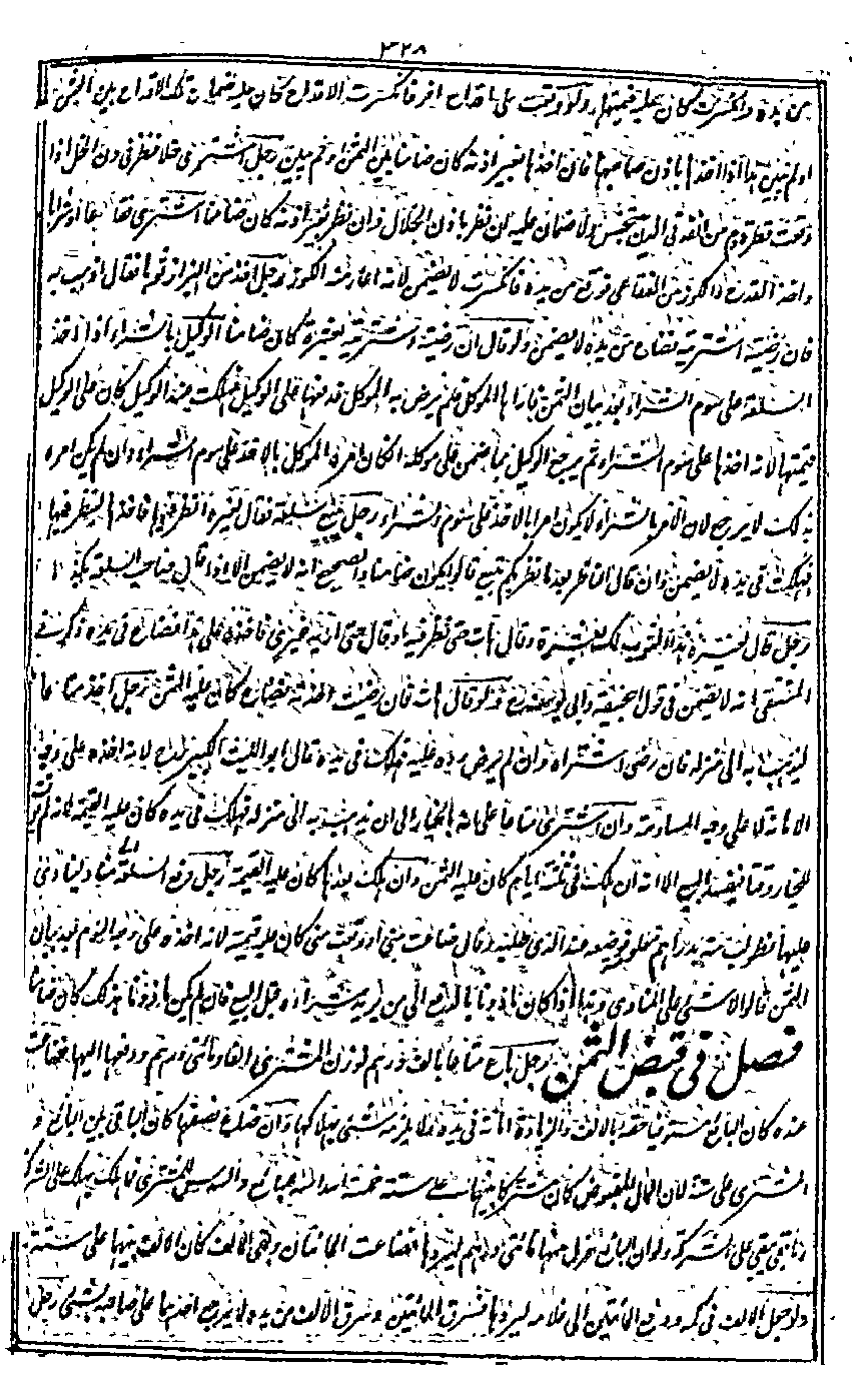 ٣٢٨
من يده وانكسرت كان عليه قيمتها ولو وقعت على اقداح اخر فانكسرت الاقداح كان عليه ضمان تلك الاقداح بين الثمن
او لم يبين هذا اذا اخذها باذن صاحبها فان اخذها بغير اذنه كان ضامنا بين الثمن او لم يبين رجل اشترى خلا فنظر فى دن الخل اذا
وقعت قطرة دم من انفه فى الدن تنجس ولا ضمان عليه ان نظر باذن الخلال وان نظر بغير اذنه كان ضامنا اشترى فقاعا او شرابا
واخذ القدح او الكوز من الفقاعى فوقع من يده فانكسرت لا يضمن لانه اعار منه الكوز رجل اخذ من البزاز ثوبا فقال اذهب به
فان رضيته اشتريته فضاع من يده لا يضمن ولو قال ان رضيته اشتريته بعشرة كان ضامنا الوكيل بالشراء اذا اخذ
السلعة على سوم الشراء بعد بيان الثمن فاراها الموكل فلم يرض به الموكل فدفعها على الوكيل فهلكت عند الوكيل كان على الوكيل
قيمتها لانه اخذها على سوم الشراء ثم يرجع الوكيل بما ضمن على موكله ان كان امره الموكل بالاخذ على سوم الشراء وان لم يكن امره
بذلك لا يرجع لان الامر بالشراء لا يكون امرا بالاخذ على سوم الشراء رجل يبيع سلعة فقال لغيره انظر فيها فاخذها لينظر فيها
فهلكت فى يده لا يضمن وان قال الناظر بعد ما نظر بكم تبيع قالوا يكون ضامنا والصحيح انه لا يضمن الا اذا قال صاحب السلعة بكذا
رجل قال لغيره هذا الثوب لك بعشرة وقال هات حتى نظر فيه او قال حتى اريه غيرى فاخذه على هذا فضاع فى يده ذكر فى
المنتقى انه لا يضمن فى قول ابيحنيفة وابى يوسف رح ولو قال هات فان رضيت اخذته فضاع كان عليه الثمن رجل اخذ متاعا
ليذهب به الى منزله فان رضى اشتراه وان لم يرض رده عليه فهلك فى يده قال ابو الليث الكبير رح لانه اخذه على وجه
الامانة لا على وجه المساومة وان اشترى متاعا على انه بالخيار الى ان يذهب به الى منزله فهلك فى يده كان عليه القيمة لانه لم يوقت
للخيار وقتا فيفسد البيع الا انه ان هلك فى ثلثة ايام كان عليه الثمن وان هلك بعدها كان عليه القيمة رجل دفع السلعة الى مناد لينادى
عليها فطلبت منه بدراهم معلومة فوضعه عند الذى طلبه وقال ضاعت منى او وقعت منى كان عليه قيمته لانه اخذه على وجه السوم بعد بيان
الثمن قالوا لا شئ على المنادى وهذا اذا كان ماذونا بالدفع الى من يريد شراءه قبل البيع فان لم يكن ماذونا بذلك كان ضامنا
فصل فى قبض الثمن رجل باع متاعا بالف درهم فوزن المشترى الفا ومائتى درهم ودفعها اليه فضاعت
عنده كان البائع مستوفيا حقه بالالف والزيادة امانة فى يده فلا يلزمه شئ بهلاكها وان ضاع نصفها كان الباقى بين البائع و
المشترى على ستة لان المال المقبوض كان مشتركا بينهما على ستة خمسة اسداسه للبائع والسدس للمشترى فما هلك يهلك على الشركة
وما بقى يبقى على الشركة ولو ان البائع عزل منها مائتى درهم ليردها فضاعت المائتان وبقى الالف كان الالف بينهما على ستة
ولو جعل الالف فى كمه ودفع المائتين الى غلامه ليردها فسرق المائتين وسرق الالف من يده لا يرجع احدهما على صاحبه بشئ رجل